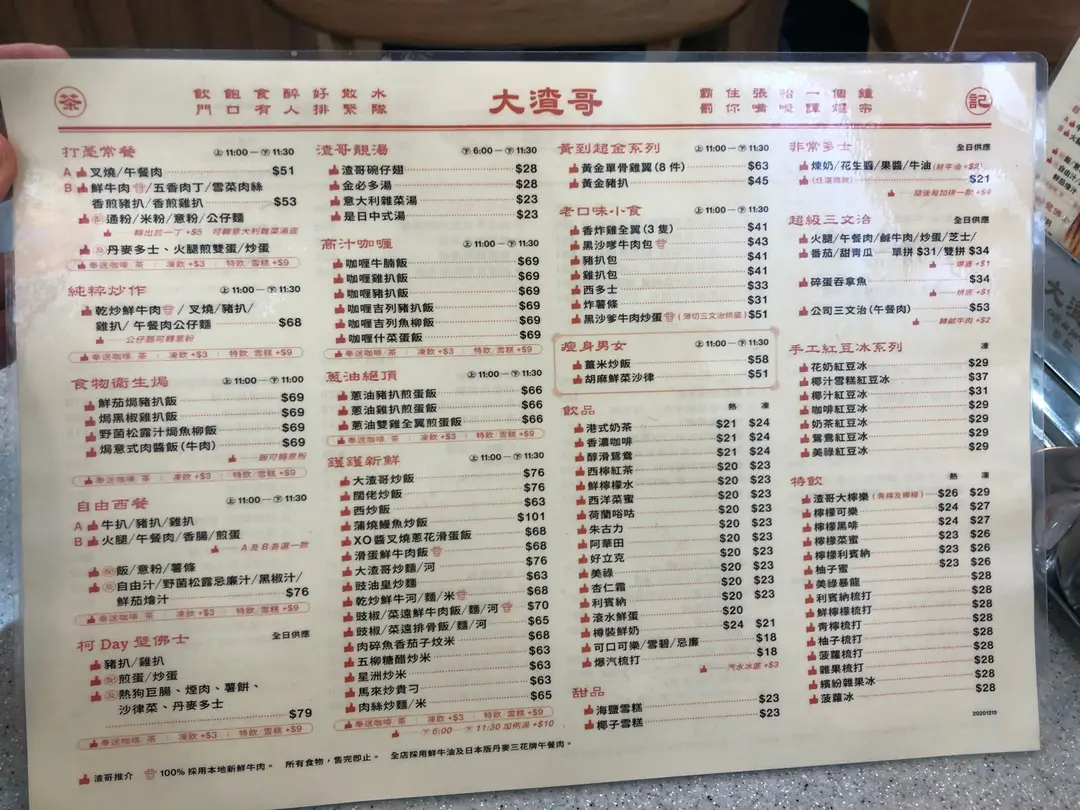 茶
飲飽食醉好散水
門口有人排緊隊
大渣哥
霸住張枱一個鐘
罰你嘴咬譚燿宗
記
打躉常餐 上11:00－下11:30
A 叉燒/午餐肉 $51
B 鮮牛肉/五香肉丁/雪菜肉絲
香煎豬扒/香煎雞扒 $53
配 通粉/米粉/意粉/公仔麵
轉出前一丁+$5 可轉意大利雜菜湯底
及 丹麥多士、火腿煎雙蛋/炒蛋
奉送咖啡 茶 凍飲+$3 特飲 雪糕+$9
純粹炒作 上11:00－下11:30
乾炒鮮牛肉/叉燒/豬扒/
雞扒/午餐肉公仔麵 $68
公仔麵可轉意粉
奉送咖啡 茶 凍飲+$3 特飲 雪糕+$9
食物衛生焗 上11:00－下11:00
鮮茄焗豬扒飯 $69
焗黑椒雞扒飯 $69
野菌松露汁焗魚柳飯 $69
焗意式肉醬飯(牛肉) $69
飯可轉意粉
奉送咖啡 茶 凍飲+$3 特飲 雪糕+$9
自由西餐 上11:00－下11:30
A 牛扒/豬扒/雞扒
B 火腿/午餐肉/香腸/煎蛋
A及B各選一款
配 飯/意粉/薯條
及 自由汁/野菌松露忌廉汁/黑椒汁/
鮮茄燴汁 $76
奉送咖啡 茶 凍飲+$3 特飲 雪糕+$9
柯Day壁佛士 全日供應
豬扒/雞扒
配 煎蛋/炒蛋
及 熱狗巨腸、煙肉、薯餅、
沙律菜、丹麥多士
$79
奉送咖啡 茶 凍飲+$3 特飲 雪糕+$9
渣哥靚湯 下6:00－下11:30
渣哥碗仔翅 $28
金必多湯 $28
意大利雜菜湯 $23
是日中式湯 $23
高汁咖喱 上11:00－下11:30
咖喱牛腩飯 $69
咖喱雞扒飯 $69
咖喱豬扒飯 $69
咖喱吉列豬扒飯 $69
咖喱吉列魚柳飯 $69
咖喱什菜蛋飯 $69
奉送咖啡/茶 凍飲+$3 特飲 雪糕+$9
蔥油絕頂 上11:00－下11:30
蔥油豬扒煎蛋飯 $66
蔥油雞扒煎蛋飯 $66
蔥油雙雞全翼煎蛋飯 $66
奉送咖啡 茶 凍飲+$3 特飲 雪糕+$9
鑊鑊新鮮 上11:00－下11:30
大渣哥炒飯 $76
闊佬炒飯 $76
西炒飯 $63
蒲燒鰻魚炒飯 $101
XO醬叉燒蔥花滑蛋飯 $68
滑蛋鮮牛肉飯 $68
大渣哥炒麵/河 $76
豉油皇炒麵 $63
乾炒鮮牛河/麵/米 $68
豉椒/菜遠鮮牛肉飯/麵/河 $70
豉椒/菜遠排骨飯/麵/河 $65
肉碎魚香茄子炆米 $68
五柳糖醋炒米 $63
星洲炒米 $63
馬來炒貴刁 $63
肉絲炒麵/米 $65
奉送咖啡 茶 凍飲+$3 特飲 雪糕+$9
下6:00－下11:30加例湯+$10
黃到超金系列 上11:00－下11:30
黃金單骨雞翼(8件) $63
黃金豬扒 $45
老口味小食 上11:00－下11:30
香炸雞全翼(3隻) $41
黑沙嗲牛肉包 $43
豬扒包 $41
雞扒包 $41
西多士 $33
炸薯條 $31
黑沙爹牛肉炒蛋(薄切三文治烘底) $51
瘦身男女 上11:00－下11:30
薑米炒飯 $58
胡麻鮮菜沙律 $51
飲品 熱 凍
港式奶茶 $21 $24
香濃咖啡 $21 $24
醇滑鴛鴦 $21 $24
西檸紅茶 $20 $23
鮮檸檬水 $20 $23
西洋菜蜜 $20 $23
荷蘭唂咕 $20 $23
朱古力 $20 $23
阿華田 $20 $23
好立克 $20 $23
美祿 $20 $23
杏仁霜 $20 $23
利賓納 $20 $23
滾水鮮蛋 $20
樽裝鮮奶 $24 $21
可口可樂/雪碧/忌廉 $18
爆汽梳打 $18
汽水冰底+$3
甜品
海鹽雪糕 $23
椰子雪糕 $23
非常多士 全日供應
煉奶/花生醬/果醬/牛油(鮮牛油+$2)
(任選兩款) $21
隨後每加拼一款+$4
超級三文治 全日供應
火腿/午餐肉/鹹牛肉/炒蛋/芝士/
番茄/甜青瓜 單拼$31/雙拼$34
烘底+$1
碎蛋吞拿魚 $34
烘底+$1
公司三文治(午餐肉) $53
轉鹹牛肉+$2
手工紅豆冰系列 凍
花奶紅豆冰 $29
椰汁雪糕紅豆冰 $37
椰汁紅豆冰 $31
咖啡紅豆冰 $29
奶茶紅豆冰 $29
鴛鴦紅豆冰 $29
美祿紅豆冰 $29
特飲 熱 凍
渣哥大檸樂(青檸及檸檬) $26 $29
檸檬可樂 $24 $27
檸檬黑啡 $24 $27
檸檬菜蜜 $23 $26
檸檬利賓納 $23 $26
柚子蜜 $23 $26
美祿暴龍 $28
利賓納梳打 $28
鮮檸檬梳打 $28
青檸梳打 $28
柚子梳打 $28
菠蘿梳打 $28
雜果梳打 $28
繽紛雜果冰 $28
菠蘿冰 $28
20201215
渣哥推介 100%採用本地新鮮牛肉。 所有食物，售完即止。 全店採用鮮牛油及日本版丹麥三花牌午餐肉。